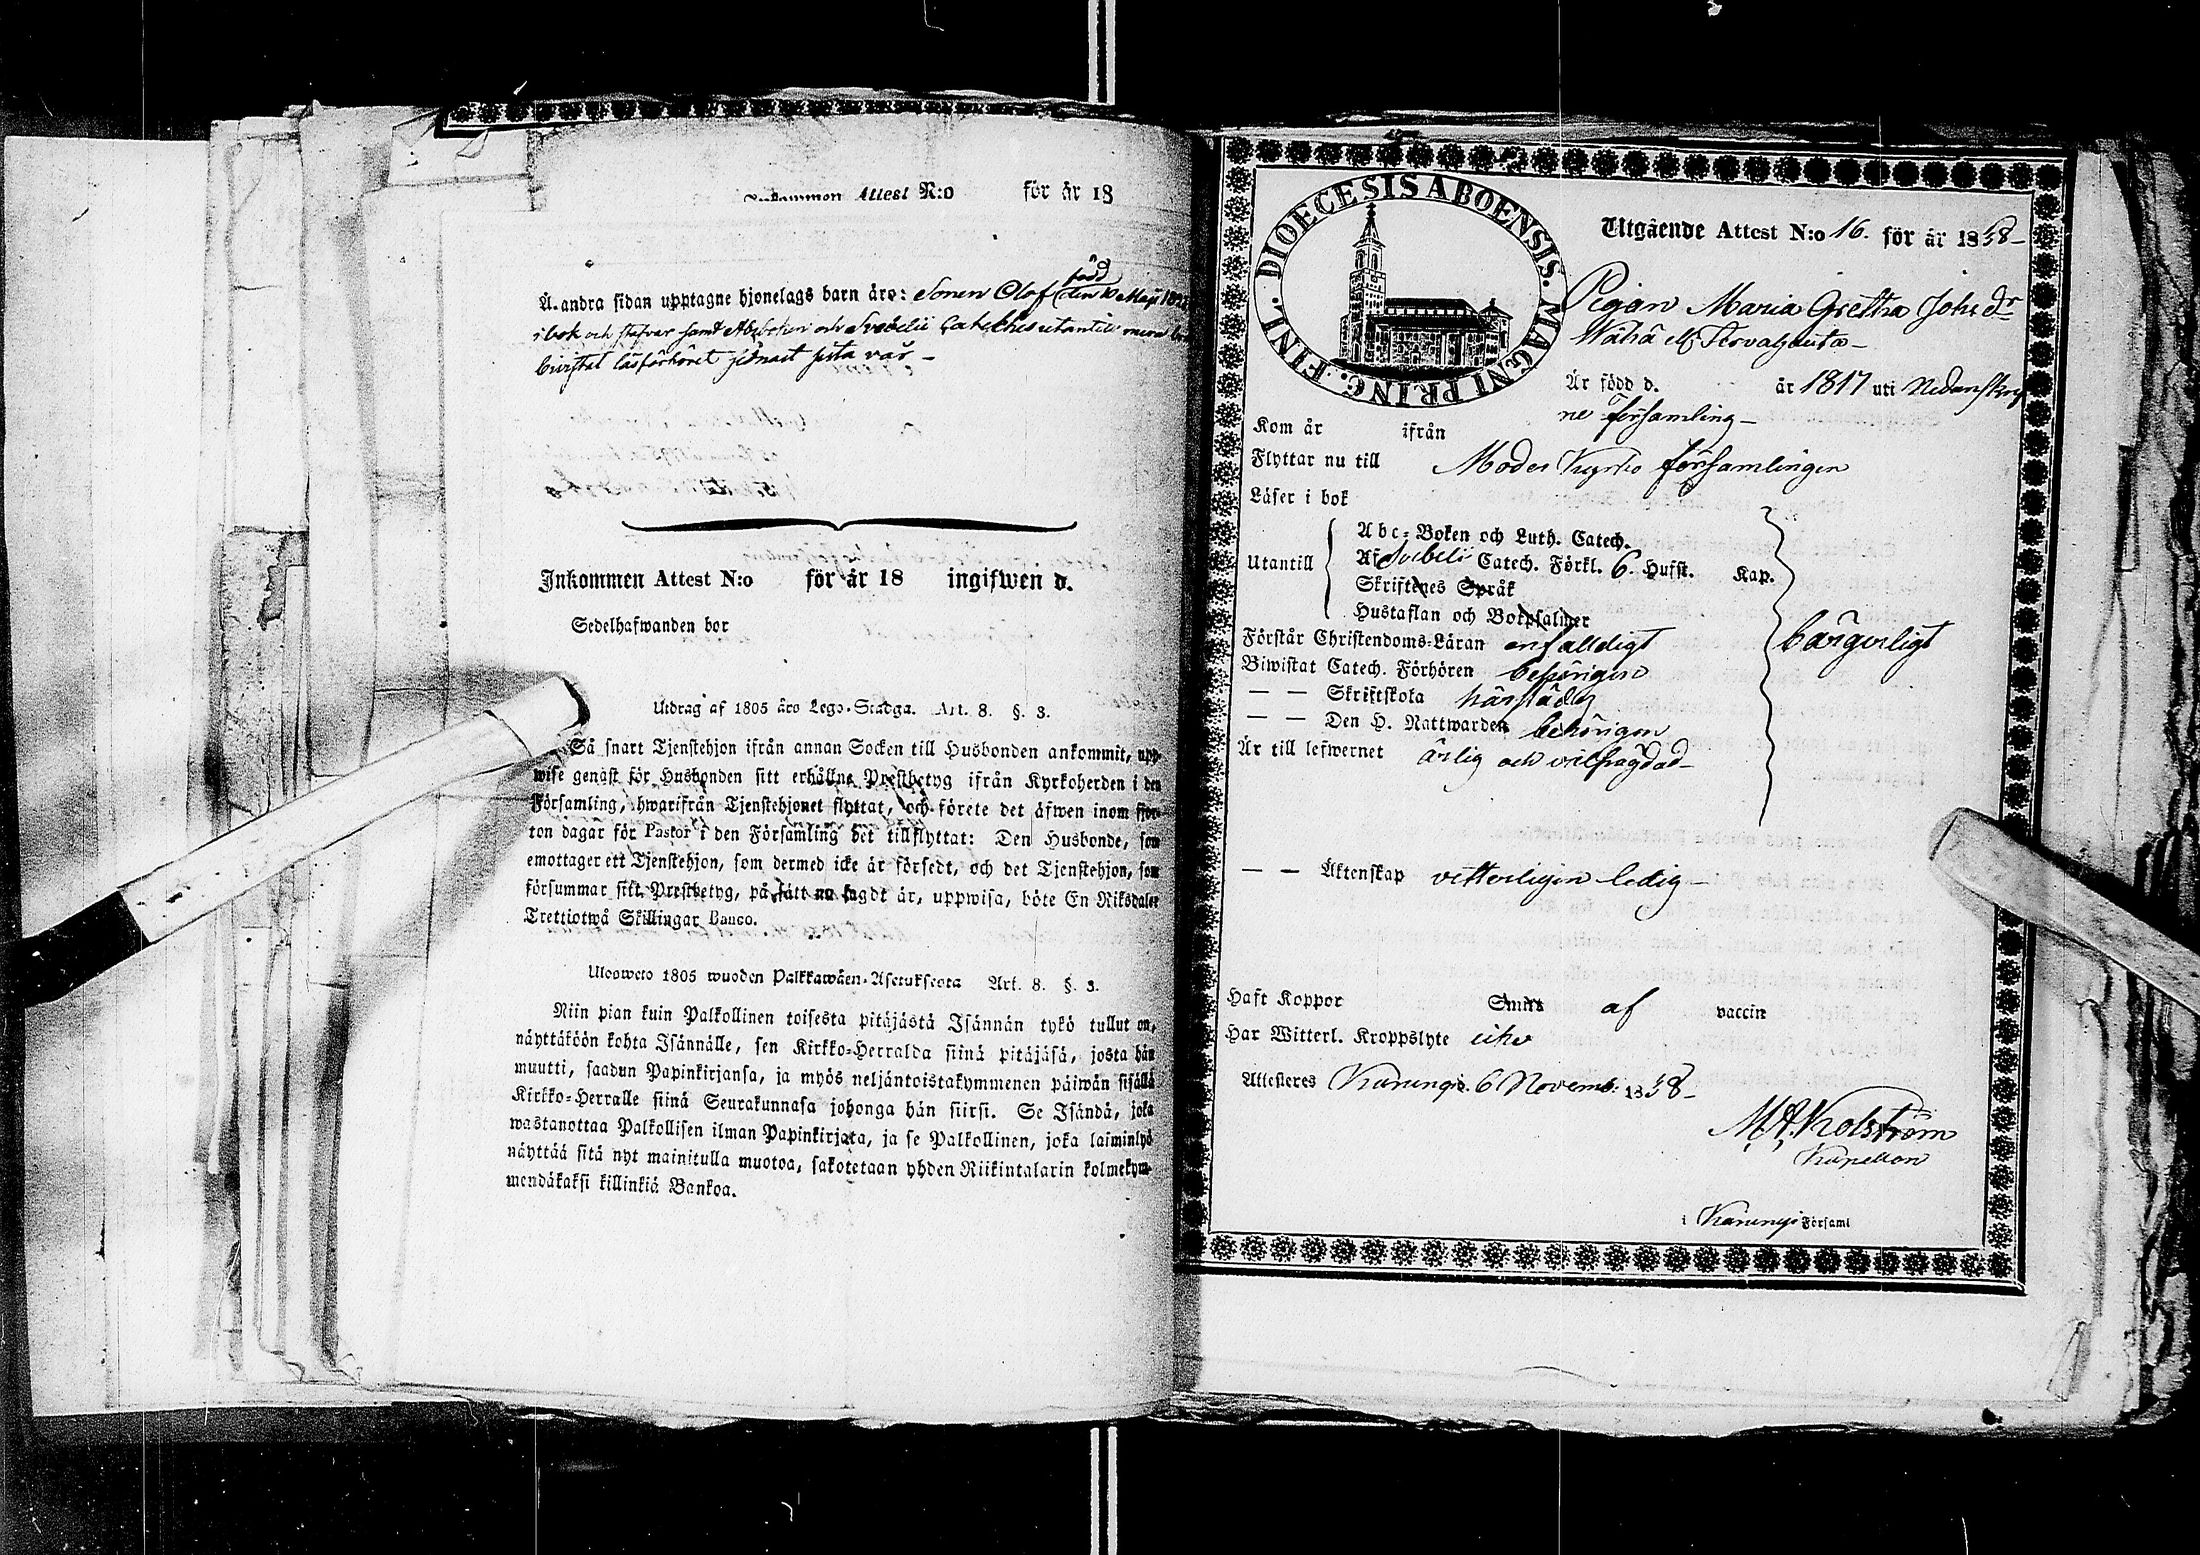 Inkommen Attest N:o för år 18
Å andra sidan upptagne hjonelags barn äro: Sonen Olof född den 10 Maji
i bok och stafvar samt Abcboken och Svebelii Cateches utantill
bivistat läsförhöret sednast sista vår –
Inkommen Attest N:o för år 18 ingifwen d.
Sedelhafwanden bor
Utdrag af 1805 års Lego-Stadga. Art. 8. §. 3.
Så snart Tjenstehjon ifrån annan Socken till Husbonden ankommit, upp-
wise genast för Husbonden sitt erhållne Prestbetyg ifrån Kyrkoherden i den
Församling, hwarifrån Tjenstehjonet flyttat, och förete det äfwen inom fjor-
ton dagar för Pastor i den Församling det tillflyttat: Den Husbonde, som
emottager ett Tjenstehjon, som dermed icke är försedt, och det Tjenstehjon, som
försummar sitt Prestbetyg, på sätt nu sagdt är, uppwisa, böte En Riksdaler
Trettiotwå Skillingar Banco.
Ulosweto 1805 wuoden Palkkawäen-Asetuksesta Art. 8. §. 3.
Niin pian kuin Palkollinen toisesta pitäjästä Isännän tykö tullut on,
näyttäköön kohta Isännälle, sen Kirkko-Herralda siinä pitäjäsä, josta hän
muutti, saadun Papinkirjansa, ja myös neljäntoistakymmenen päiwän sisällä
Kirkko-Herralle siinä Seurakunnasa johonga hän siirsi. Se Isändä, joka
wastanottaa Palkollisen ilman Papinkirjata, ja se Palkollinen, joka laiminlyö
näyttää sitä nyt mainitulla muotoa, sakotetaan yhden Riikintalarin kolmekym-
mendäkaksi killinkiä Bankoa.
DIOECESIS ABOENSIS. MAGNI PRINC. FINL.
Utgående Attest N:o 16. för år 1838–
Pigan Maria Gretha Johs dr
Wähä
Är född d. år 1817 uti Nedanskrif
ne församling –
Kom år ifrån
Flyttar nu till Moder Kyrko församlingen
Läser i bok
Abc-Boken och Luth. Catech.
Utantill Af Svebelii Catech. Förkl. 6. Hufst. Kap.
Skriftenes Språk
Hustaflan och Botpsalmer
Förstår Christendoms-Läran enfalldigt bärgerligt
Biwistat Catech. Förhören behörigen
— — Skriftskola härstädes
— — Den H. Nattwarden behörigen
Är till lefwernet ärlig och välfrägdad–
— — Äktenskap vetterligen ledig –
Haft Koppor Smitt af vaccin
Har Witterl. Kroppslyte icke
Attesteres Karungi 6 Novemb: 1838–
M. A. Kolström
Kapellan
i Karungi Församl